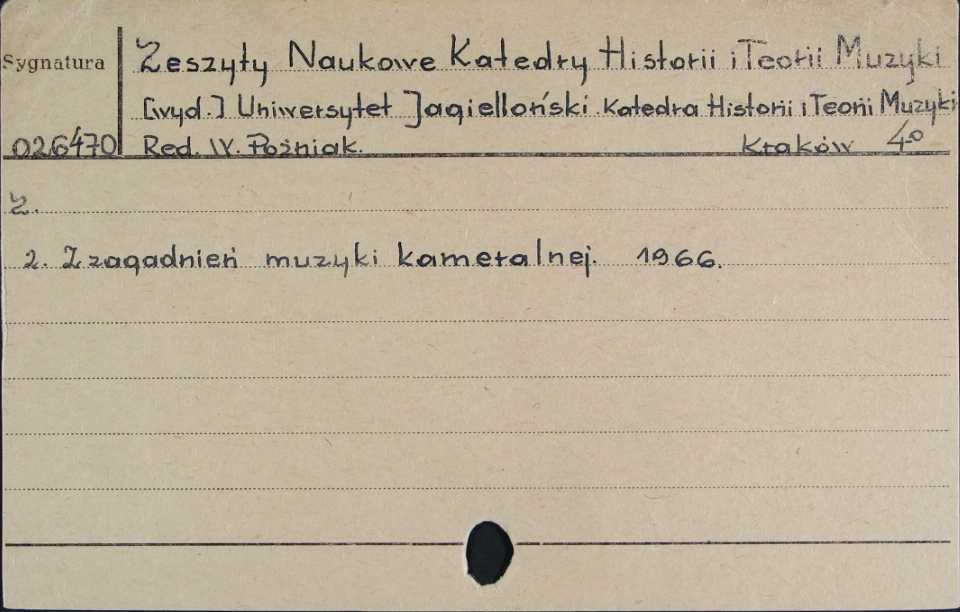 Sygnatura
Zeszyty Naukowe Katedry Historii i Teorii Muzyki
[wyd.] Uniwersytet Jagielloński. Katedra Historii i Teorii Muzyki
026470 Red. W. Poźniak. Kraków 4°
Z.
2. Z zagadnień muzyki kameralnej. 1966.